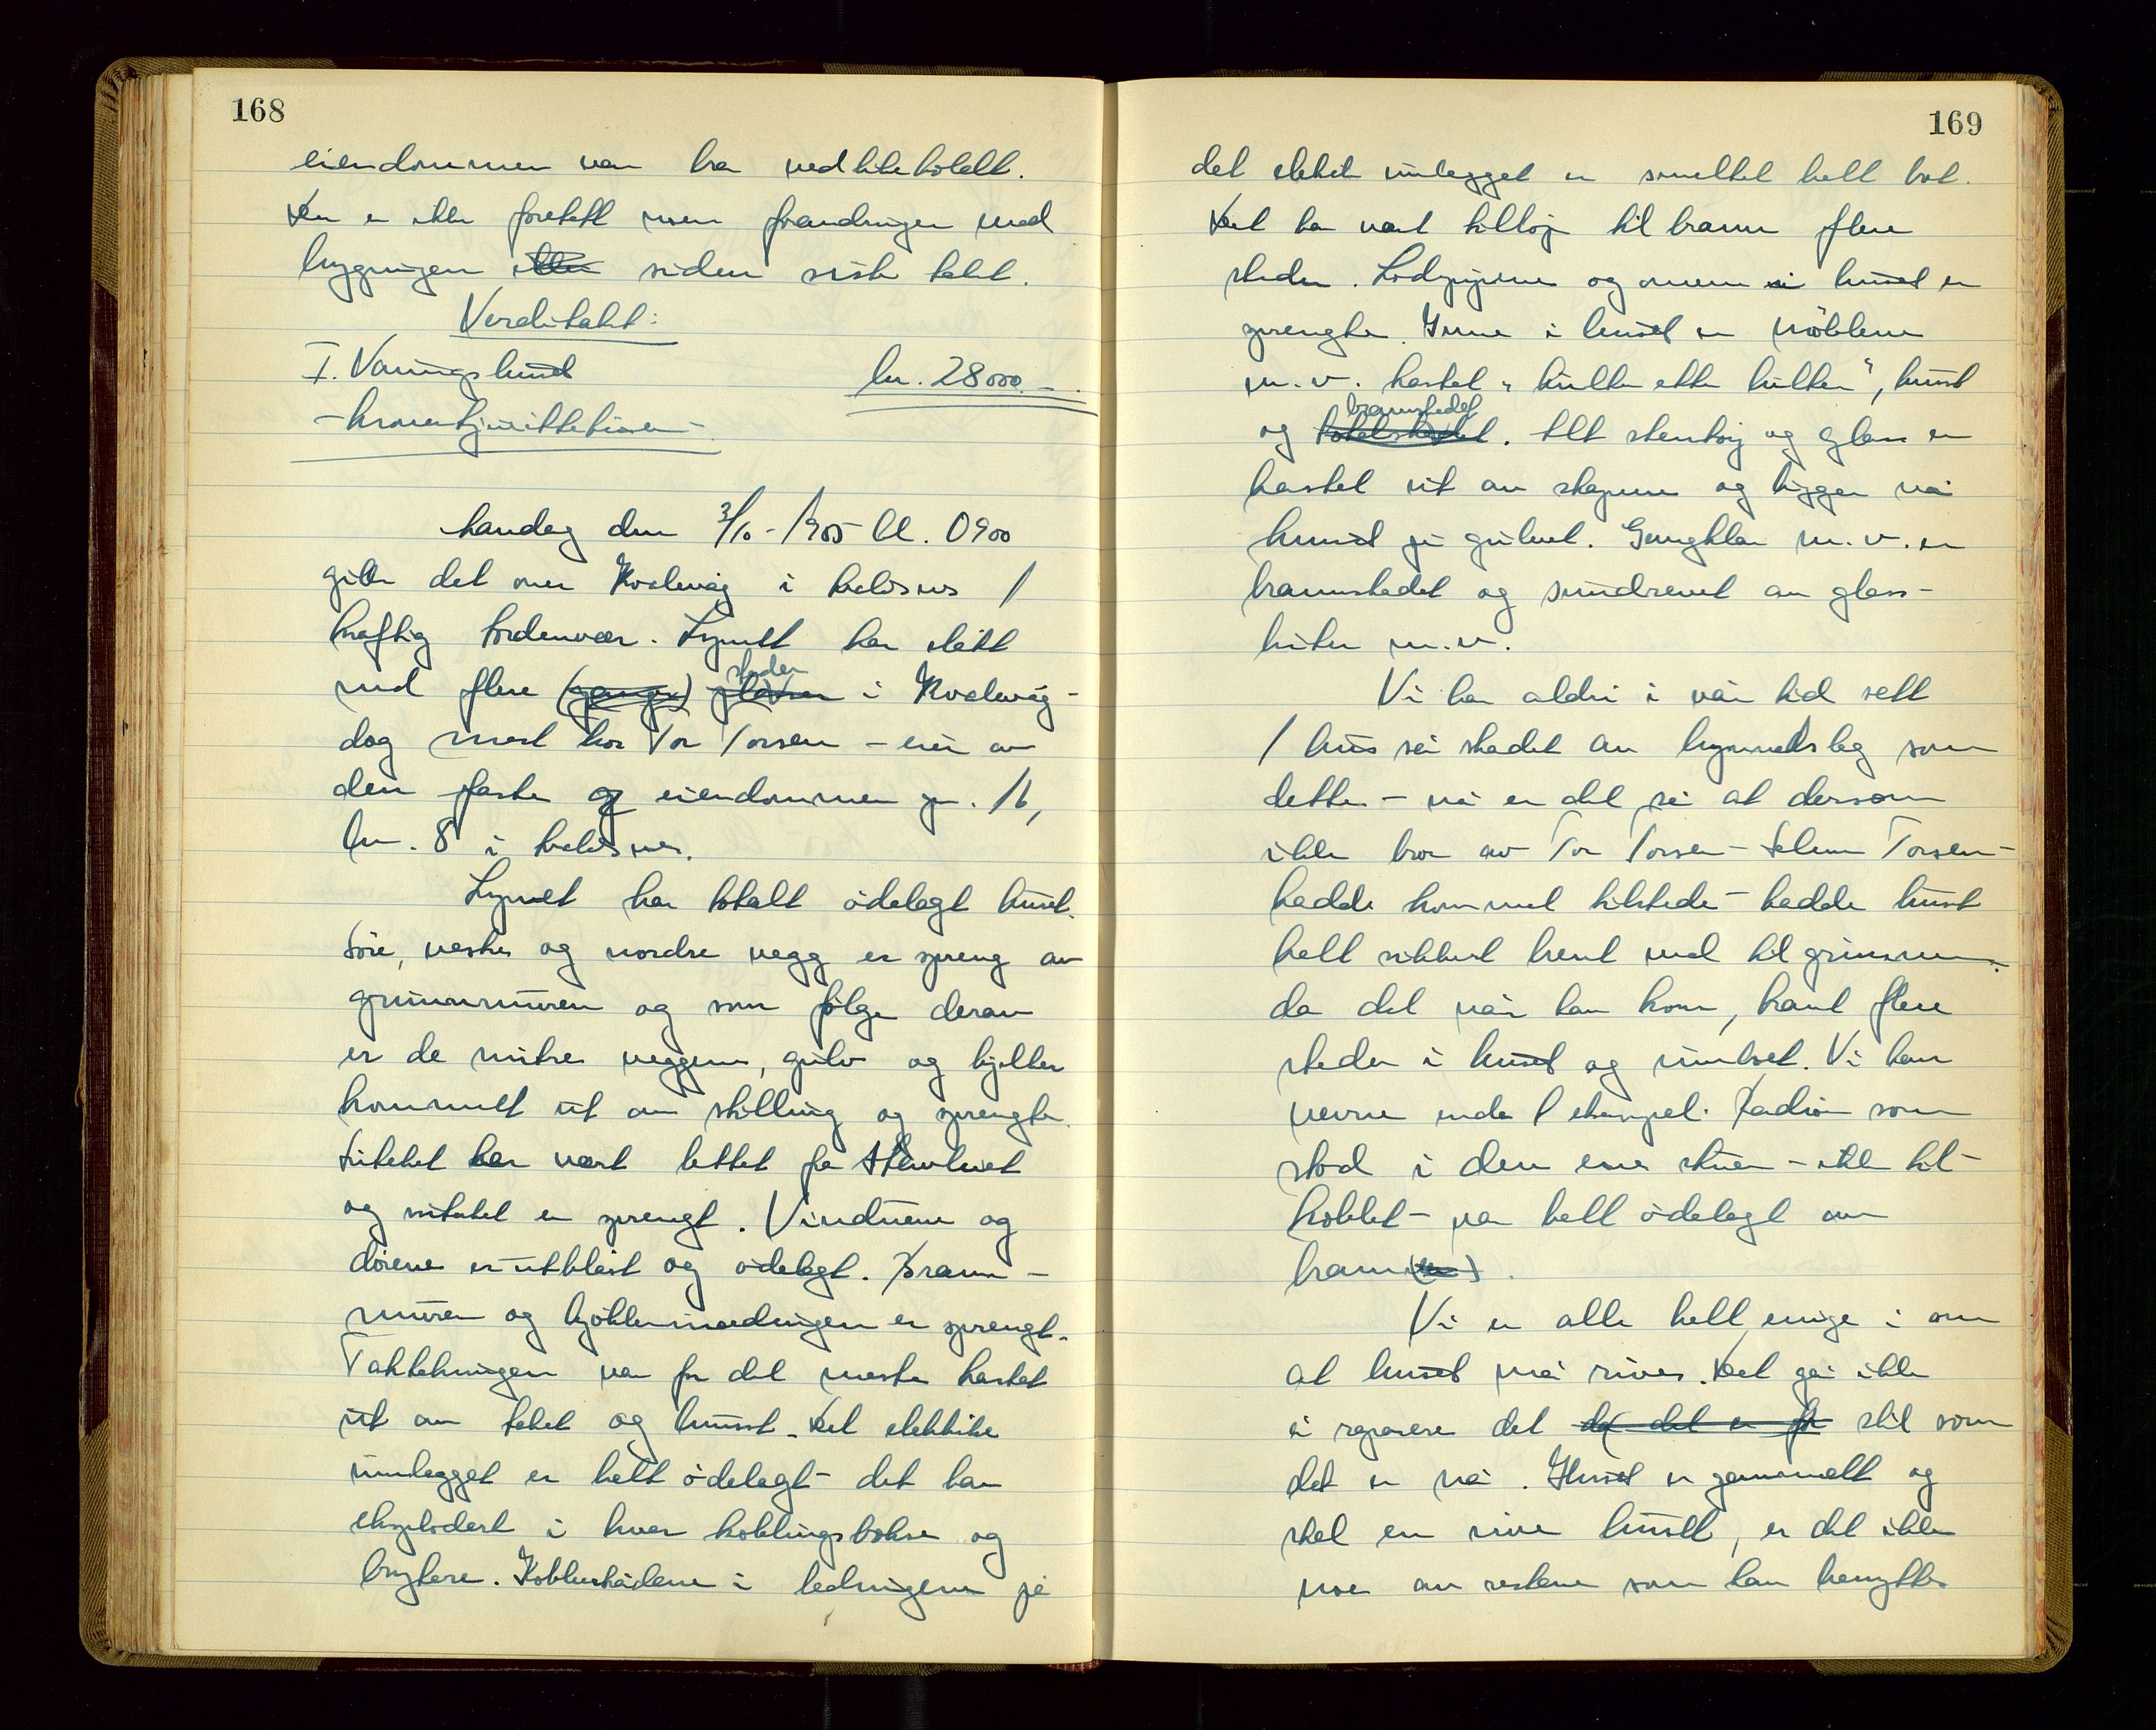 168
eiendommen var bra vedlikeholdt.
Der er ikke foretatt noen forandringer med
bygningen siden siste takt.
Verditakt:
I. Vaningshuset kr. 28000.-
- kroner tjueåttetusen -
Mandag den 3/10-1955 kl. 0900
gikk det over Kvalevåg i 1
kraftig tordenvær. Lynet har slått
ned flere (ganger) plasser steder i Kvalevåg -
dog mest hos Tor Torsen - eier av
den faste og eiendommen gn. 16,
bn. 8 i
Lynet har totalt ödelagt huset.
Söre, vestre og nordre vegg er spreng av
grunnmuren og som fölge derav
er de indre veggene, gulv og bjelker
kommet ut av stilling og sprengte.
Sutaket har vært lettet fra
og sutaket er sprengt. Vinduene og
dörene er utblåst og ödelagt. Brann-
muren og kjökkeninredningen er sprengt.
Taktekningen var for det meste kastet
ut av taket og huset. Det elektriske
innlegget er helt ödelagt - det har
eksplodert i hver koblingsbokse og
brytere. Kobbertrådene i ledningene på
169
det elektriske innlegget er smeltet helt bort.
Det har vært tillöp til brann flere
steder. Lodpipene og ovnene i huset er
sprengte. Inne i huset er möblene
m.v. kastet "hulter etter bulter", knust
og brannskadet. Alt stentöy og glass er
kastet ut av skapene og ligger nå
knust på gulvet. Gangklær m.v. er
brannskadet og sundrevet av glass-
biter m.v.
Vi har aldri i vår tid sett
1 hus så skadet av lynnedslag som
dette - nå er det så at dersom
ikke bror av Tor Torsen - Torsen -
hadde kommet tilstede - hadde huset
helt sikkert brent ned til grunnen
da det når han kom, brant flere
steder i huset og uthuset. Vi kan
nevne enda 1 eksempel. Radioen som
stod i den ene stuen - ikke til-
koblet - var helt ödelagt av
brann(en).
Vi er alle helt enige i om
at huset må rives. Det går ikke
å reparere det da det er for slik som
det er nå. Huset er gammelt og
skal en rive huset, er det ikke
noe av restene som kan benyttes